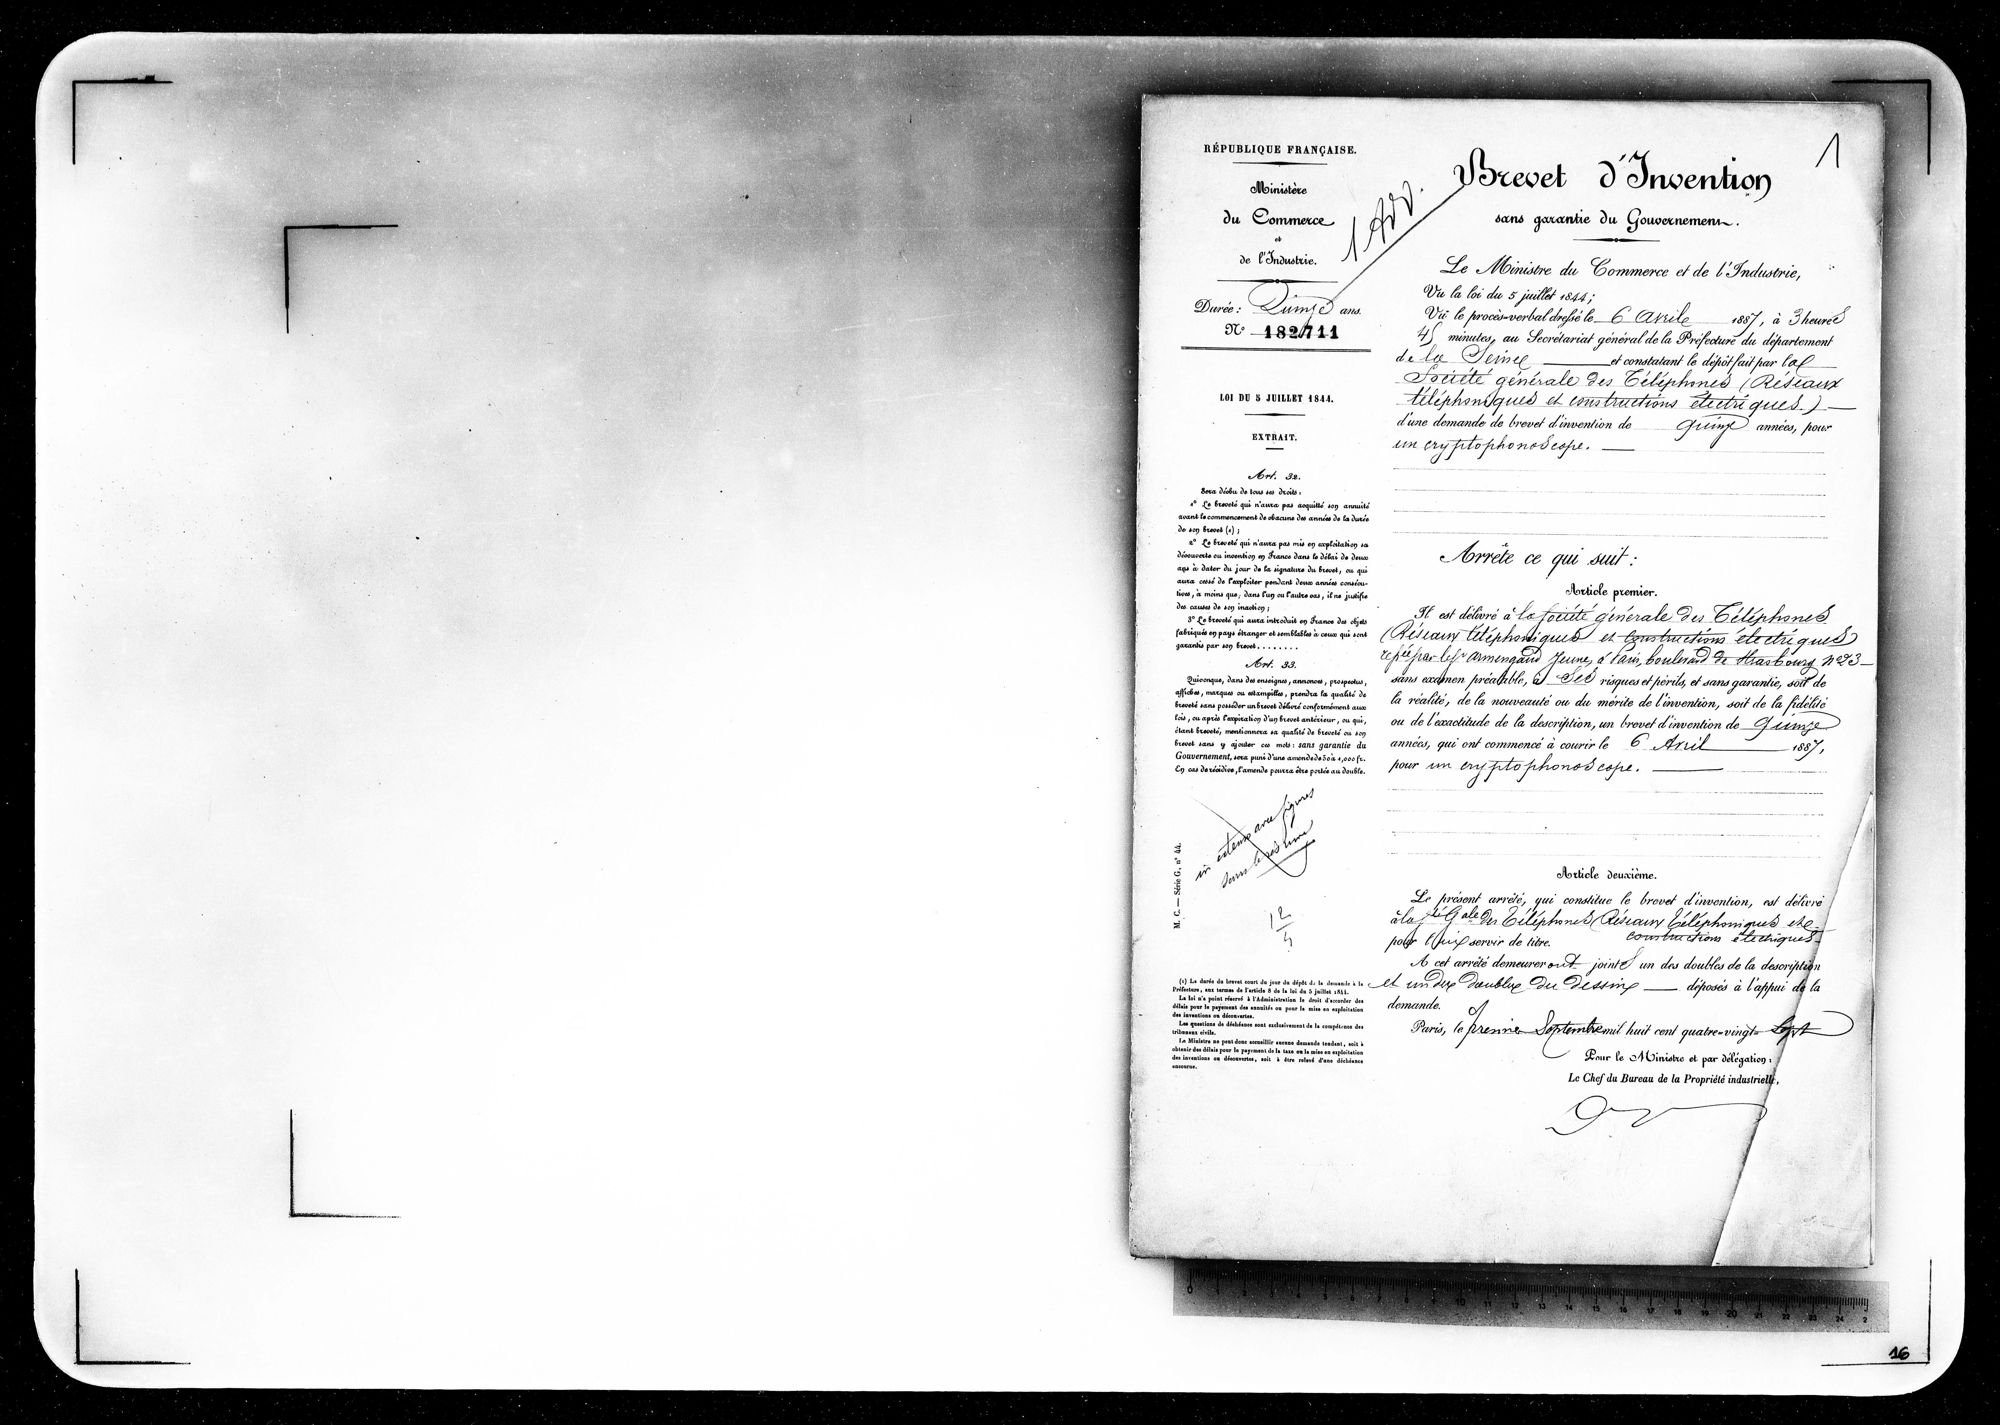 RÉPUBLIQUE FRANÇAISE.
Ministère
du Commerce
et
de l'Industrie.
Durée : Quinze ans.
N° 182711
LOI DU 5 JUILLET 1844.
EXTRAIT.
Art. 32.
Sera déchu de tous ses droits :
1° Le breveté qui n'aura pas acquitté son annuité
avant le commencement de chacune des années de la durée
de son brevet (1) ;
2° Le breveté qui n'aura pas mis en exploitation sa
découverte ou invention en France dans le délai de deux
ans à dater du jour de la signature du brevet, ou qui
aura cessé de l'exploiter pendant deux années consécu-
tives, à moins que, dans l'un ou l'autre cas, il ne justifie
des causes de son inaction ;
3° Le breveté qui aura introduit en France des objets
fabriqués en pays étranger et semblables à ceux qui sont
garantis par son brevet . . . . . . . .
Art. 33.
Quiconque, dans des enseignes, annonces, prospectus,
affiches, marques ou estampilles, prendra la qualité de
breveté sans posséder un brevet délivré conformément aux
lois, ou après l'expiration d'un brevet antérieur, ou qui,
étant breveté, mentionnera sa qualité de breveté ou son
brevet sans y ajouter ces mots : sans garantie du
Gouvernement, sera puni d'une amende de 50 à 1,000 fr.
En cas de récidive, l'amende pourra être portée au double.
in extenso avec figures
12
5
M. C. — Série G, n° 44.
(1) La durée du brevet court du jour du dépôt de la demande à la
Préfecture, aux termes de l'article 8 de la loi du 5 juillet 1844.
La loi n'a point réservé à l'Administration le droit d'accorder des
délais pour le payement des annuités ou pour la mise en exploitation
des inventions ou découvertes.
Les questions de déchéance sont exclusivement de la compétence des
tribunaux civils.
Le Ministre ne peut donc accueillir aucune demande tendant, soit à
obtenir des délais pour le payement de la taxe ou la mise en exploitation
des inventions ou découvertes, soit à être relevé d'une déchéance
encourue.
1 Add.
1
Brevet d'Invention
sans garantie du Gouvernement.
Le Ministre du Commerce et de l'Industrie,
Vu la loi du 5 juillet 1844 ;
Vu le procès-verbal dressé le 6 Avril 1887, à 3 heures
45 minutes, au Secrétariat général de la Préfecture du département
de la Seine et constatant le dépôt fait par la
Société générale des Téléphones (Réseaux
téléphoniques et constructions électriques.)
d'une demande de brevet d'invention de quinze années, pour
un cryptophonoscope.
Arrête ce qui suit :
Article premier.
Il est délivré à la Société générale des Téléphones
(Réseaux téléphoniques et constructions électriques)
repée par le Sr Armengaud Jeune, à Paris, boulevard de Strasbourg n° 23
sans examen préalable, à ses risques et périls, et sans garantie, soit de
la réalité, de la nouveauté ou du mérite de l'invention, soit de la fidélité
ou de l'exactitude de la description, un brevet d'invention de quinze
années, qui ont commencé à courir le 6 Avril 1887,
pour un cryptophonoscope.
Article deuxième.
Le présent arrêté, qui constitue le brevet d'invention, est délivré
à la Sté Gale des Téléphones (Réseaux Téléphoniques et
constructions électriques
pour lui servir de titre.
A cet arrêté demeureront joints un des doubles de la description
et un des doubles du dessin déposés à l'appui de la
demande.
Paris, le premier Septembre mil huit cent quatre-vingt-Sept
Pour le Ministre et par délégation :
Le Chef du Bureau de la Propriété industrielle,
0 1 2 3 4 5 6 7 8 9 10 11 12 13 14 15 16 17 18 19 20 21 22 23 24 2
16